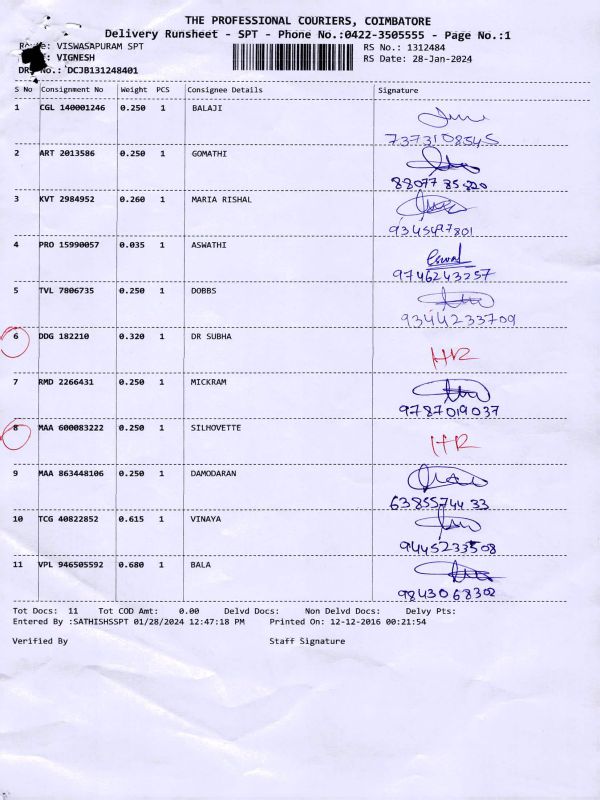 THE PROFESSIONAL COURIERS, COIMBATORE
Delivery Runsheet - SPT - Phone No.:0422-3505555 - Page No.:1
VISWASAPURAM SPT RS No.: 1312484
VIGNESH RS Date: 28-Jan-2024
No.: DCJB131248401
S No Consignment No Weight PCS Consignee Details Signature
1 CGL 140001246 0.250 1 BALAJI
7373108545
2 ART 2013586 0.250 1 GOMATHI
88077 85220
3 KVT 2984952 0.260 1 MARIA RISHAL
9345497801
4 PRO 15990057 0.035 1 ASWATHI
9746243257
5 TVL 7806735 0.250 1 DOBBS
9344233709
6 DDG 182210 0.320 1 DR SUBHA
7 RMD 2266431 0.250 1 MICKRAM
9787019037
8 MAA 600083222 0.250 1 SILHOVETTE
9 MAA 863448106 0.250 1 DAMODARAN
6385574433
10 TCG 40822852 0.615 1 VINAYA
9445233508
11 VPL 946505592 0.680 1 BALA
9843068302
Tot Docs: 11 Tot COD Amt: 0.00 Delvd Docs: Non Delvd Docs: Delvy Pts:
Entered By :SATHISHSSPT 01/28/2024 12:47:18 PM Printed On: 12-12-2016 00:21:54
Verified By Staff Signature